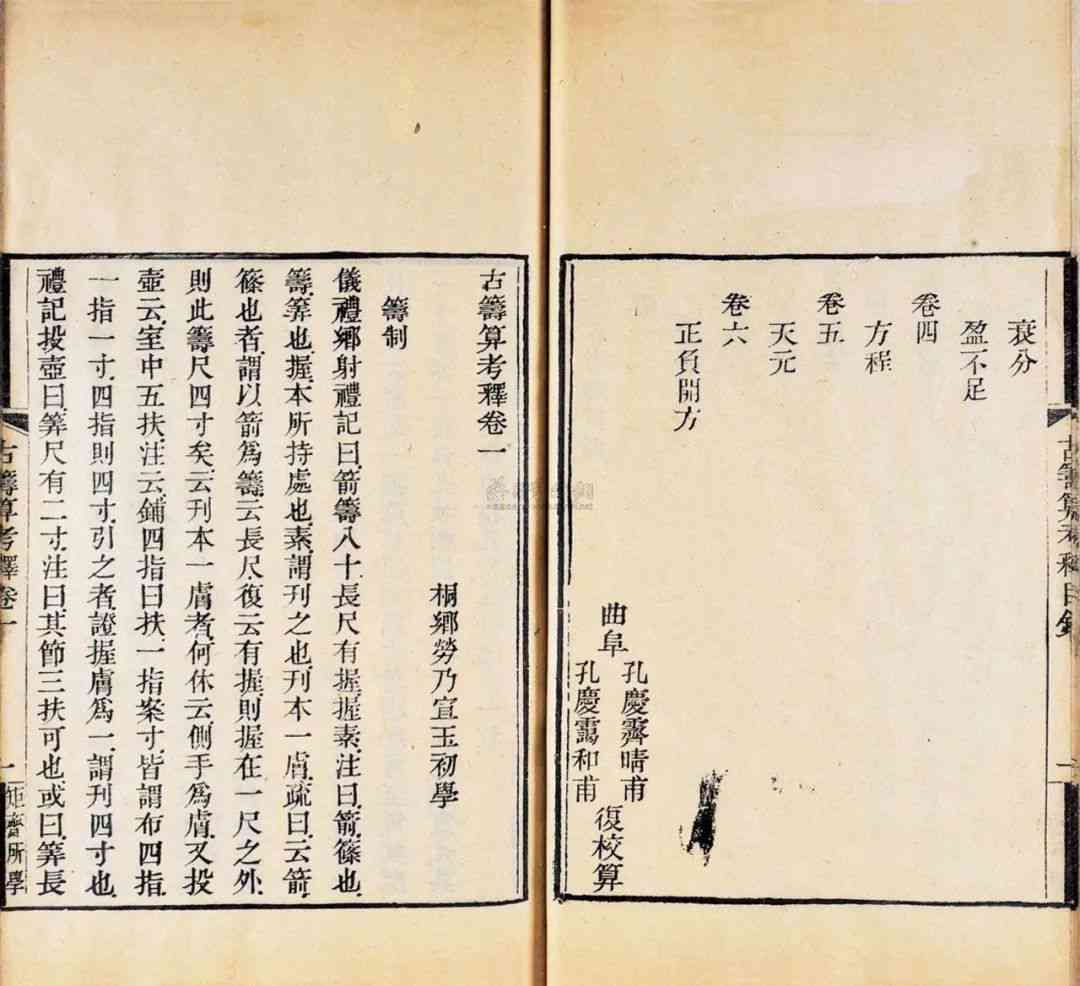 衰分
盈不足
卷四
方程
卷五
天元
卷六
正負開方
曲阜
孔慶霽晴甫
孔慶靄和甫
復校算
古籌算考釋目錄
一
古籌算考釋卷一
桐鄉勞乃宣玉初學
籌制
儀禮鄉射禮記曰箭籌八十長尺有握握素注曰箭篠也
籌筭也握本所持處也素謂刊之也刊本一膚疏曰云箭
篠也者謂以箭爲籌云長尺復云有握則握在一尺之外
則此籌尺四寸矣云刊本一膚者何休云側手爲膚又投
壺云室中五扶注云鋪四指曰扶一指案寸皆謂布四指
一指一寸四指則四寸引之者證握膚爲一謂刊四寸也
禮記投壺曰筭尺有二寸注曰其節三扶可也或曰筭長
古籌算考釋卷一
一
矩齋所學